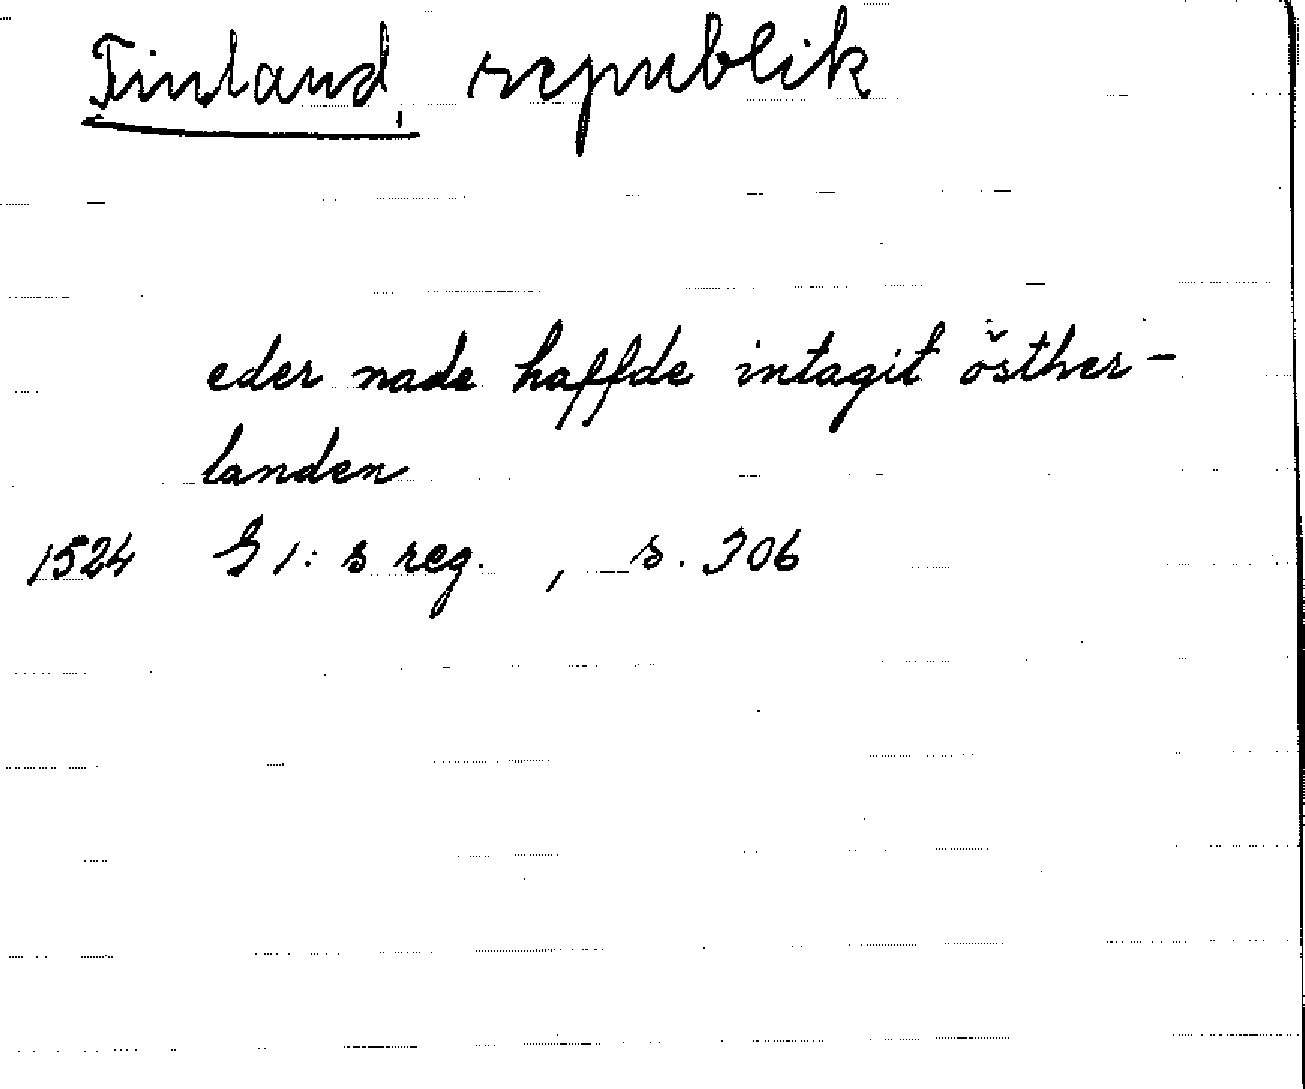 Finland, republik
eder nade haffde intagit östher-
landen
1524 G 1:s reg. , s. 306